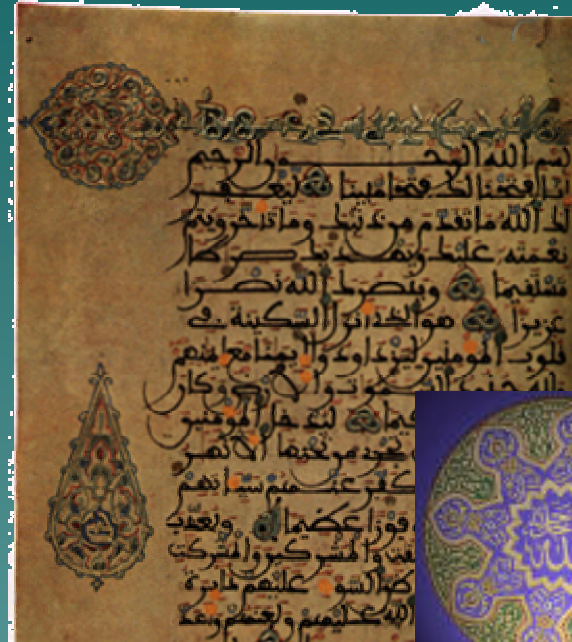 بسم الله الرحمن الرحيم
انا فتحنا لك فتحا مبينا ليغفر
لك الله ما تقدم من ذنبك وما تاخر ويتم
نعمته عليك ويهديك صرطا
مستقيما وينصرك الله نصرا
عزيزا هو الذى انزل السكينة فى
قلوب المومنين ليزدادوا ايمنا مع ايمنهم
ولله جنود السموت والارض وكان
ليدخل المومنين
تجرى من تحتها الانهر
يكفر عنهم سياتهم
فوزا عظيما ويعذب
والمشركين والمشركت
ظن السوء عليهم دايرة
الله عليهم ولعنهم واعد
الله